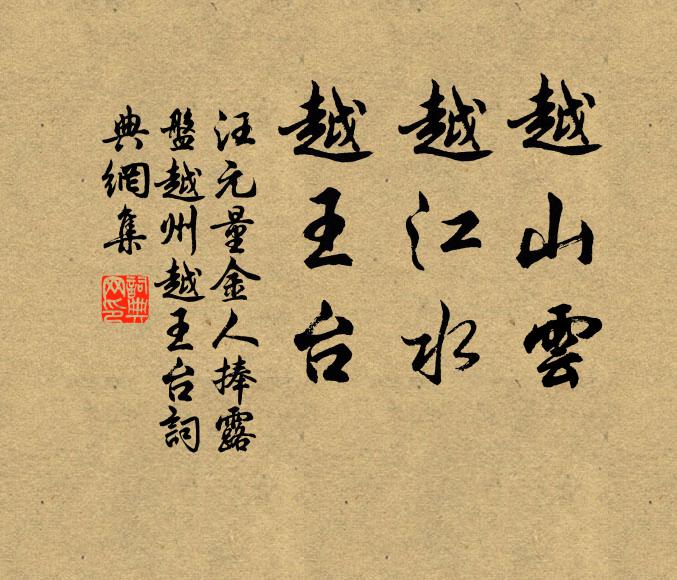 越山雲
越江水
越王台
汪元量金人捧露
盤越州越王台詞
典網集
詞典
网印